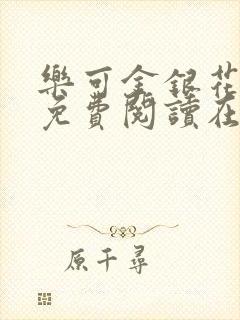 樂可金銀花
免費閱讀在
原千尋